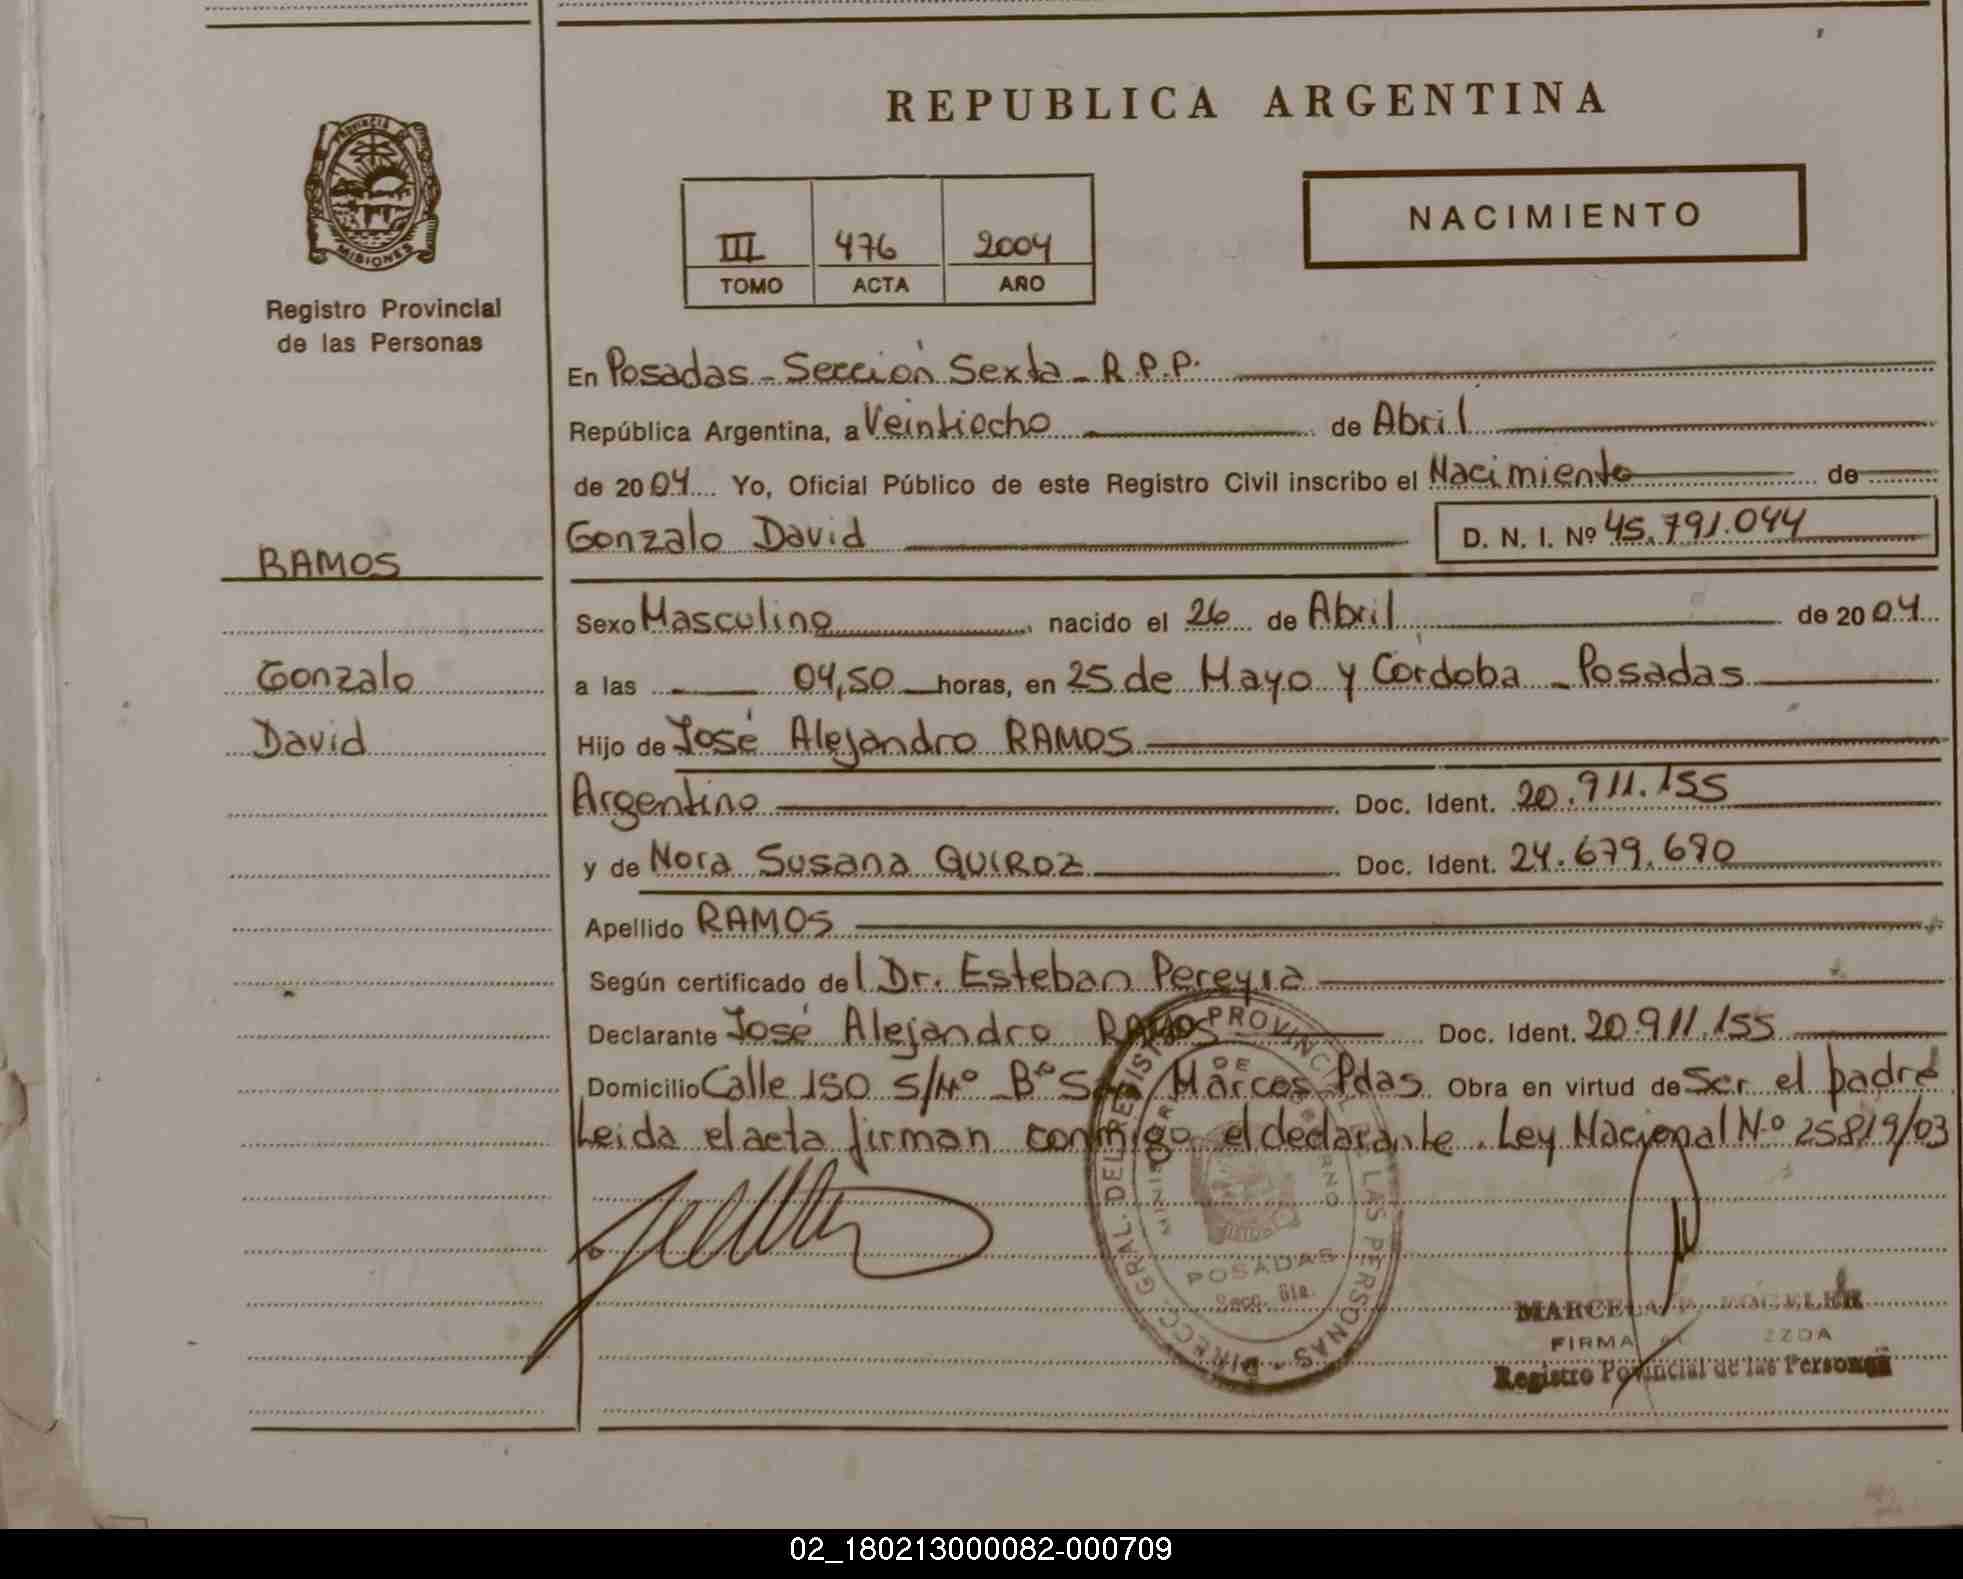 REPUBLICA ARGENTINA
PROVINCIA DE
MISIONES
Registro Provincial
de las Personas
III 476 2004
TOMO ACTA AÑO
NACIMIENTO
En Posadas - Sección Sexta - R.P.P.
República Argentina, a Veintiocho de Abril
de 2004 Yo, Oficial Público de este Registro Civil inscribo el Nacimiento de
Gonzalo David D. N. I. Nº 45.791.044
RAMOS
Sexo Masculino, nacido el 26 de Abril de 2004
Gonzalo
a las 04,50 horas, en 25 de Mayo y Córdoba - Posadas
David
Hijo de José Alejandro RAMOS
Argentino Doc. Ident. 20.911.155
y de Nora Susana QUIROZ Doc. Ident. 24.679.690
Apellido RAMOS
Según certificado del Dr. Esteban Pereyra
Declarante José Alejandro RAMOS Doc. Ident. 20.911.155
Domicilio Calle 150 S/Nº Bº San Marcos Pdas. Obra en virtud de Ser el padre
Leida el acta firman conmigo el declarante. Ley Nacional Nº 25819/03
DIRECC. GRAL. DEL REGISTRO PROVINCIAL DE LAS PERSONAS
MINISTERIO DE GOBIERNO
POSADAS
Secc. 6ta.
MARCELA
FIRMA
Registro Provincial de las Personas
02_180213000082-000709